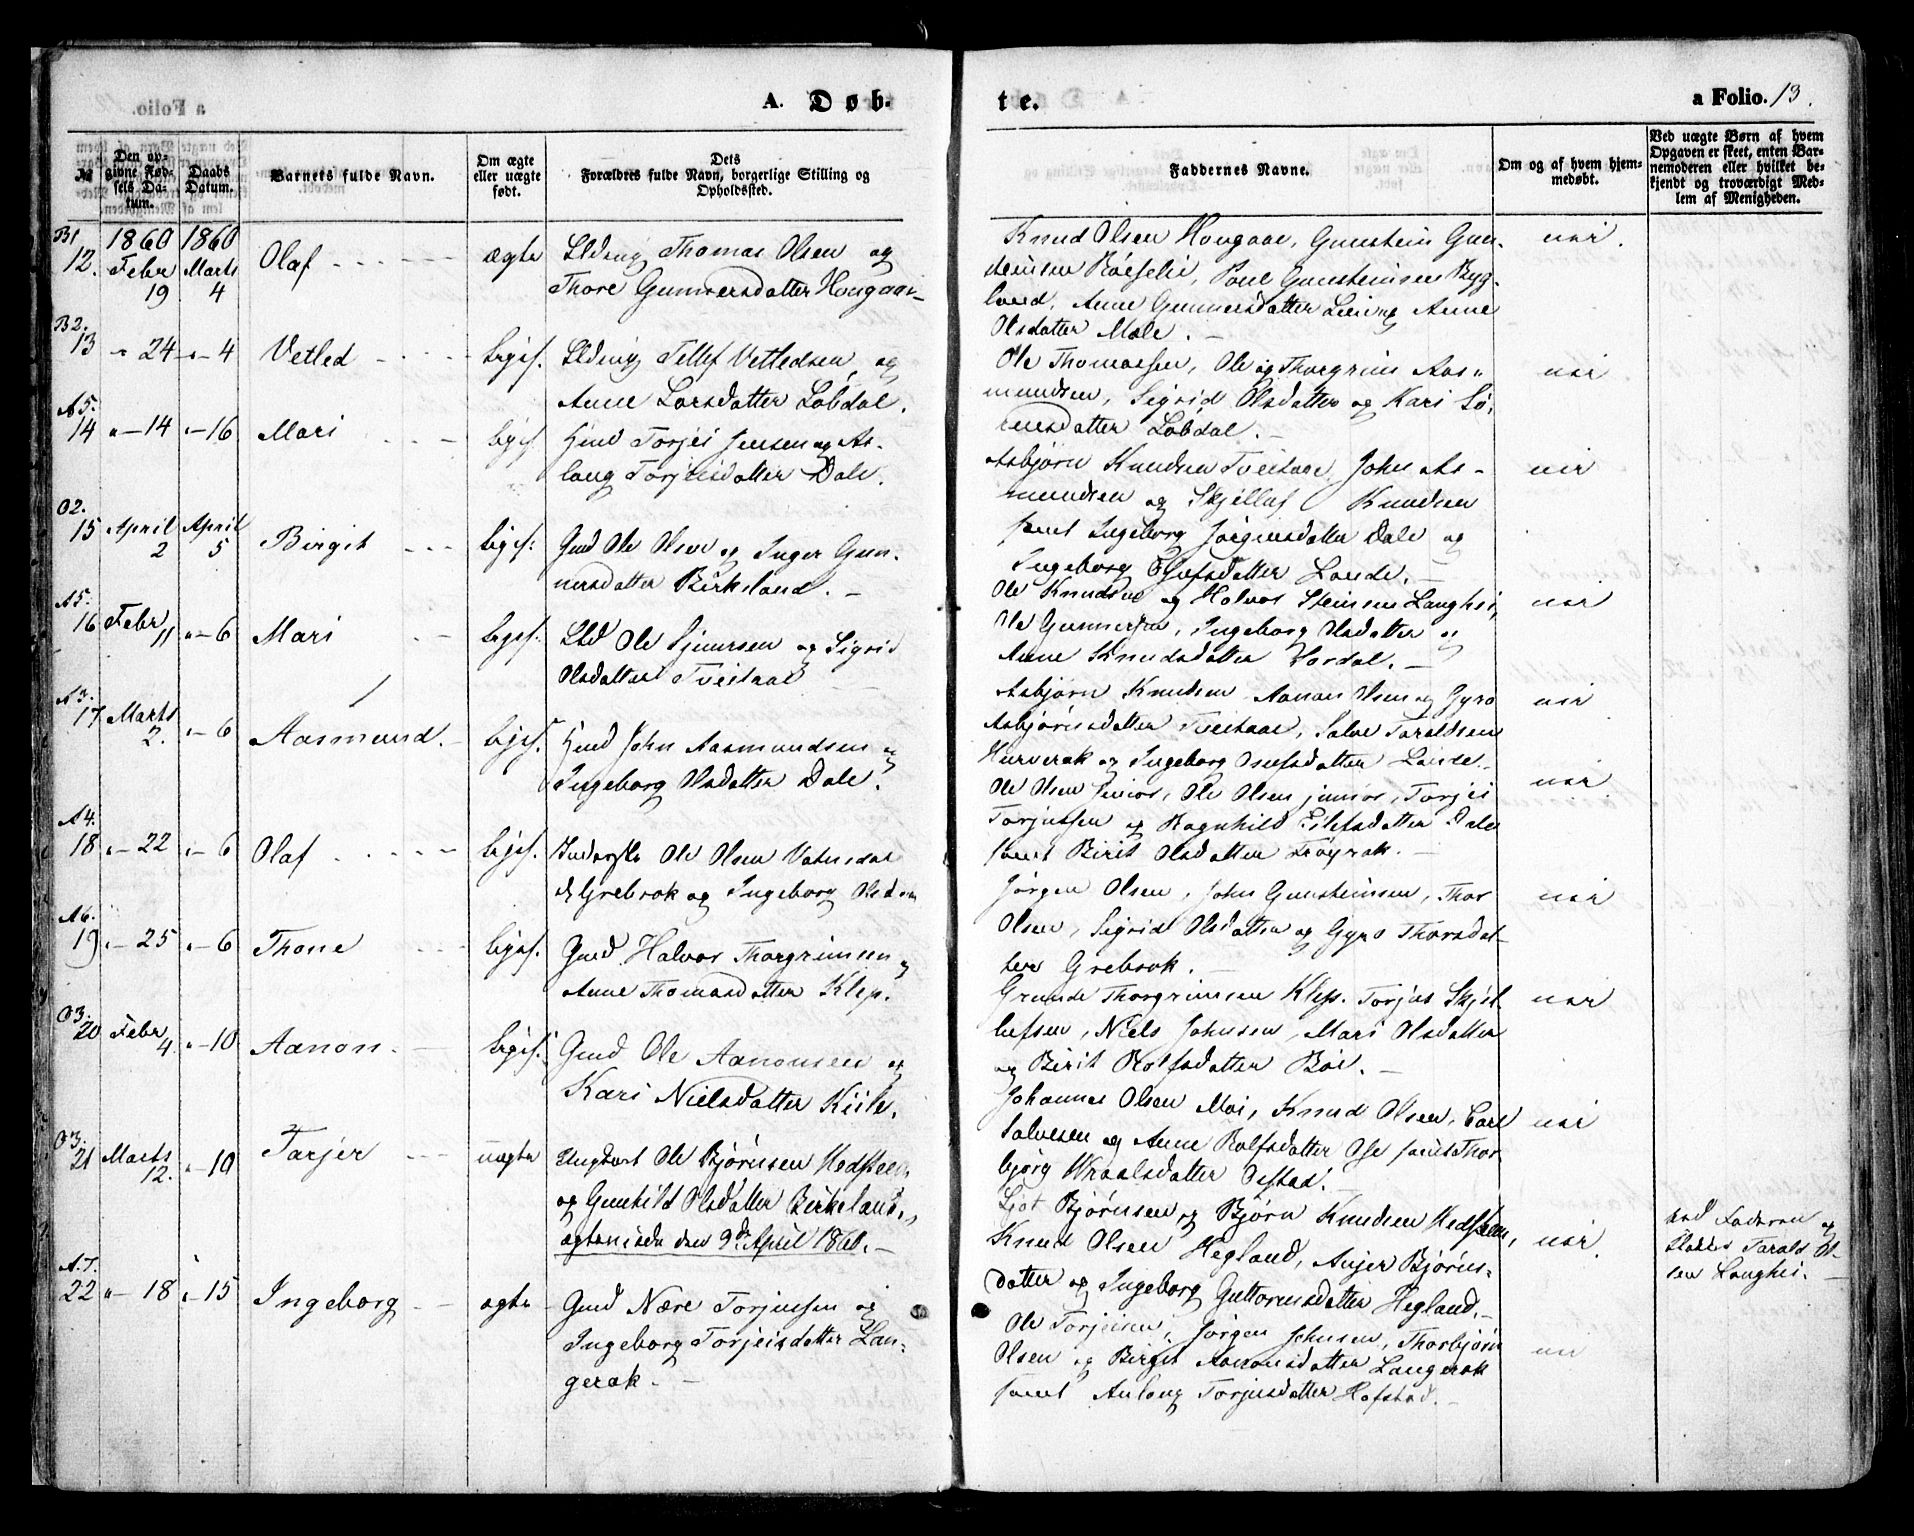 A. Døb-
te.
a Folio. 13.
No
Den op-
givne Fød-
sels Da-
tum.
Daabs
Datum.
Barnets fulde Navn.
Om ægte
eller uægte
født.
Dets
Forældres fulde Navn, borgerlige Stilling og
Opholdssted.
Faddernes Navne.
Om og af hvem hjem-
medøbt.
Ved uægte Børn af hvem
Opgaven er skeet, enten Bar-
nemoderen eller hvilket be-
kjendt og troværdigt Med-
lem af Menigheden.
B1
12. 1860 Febr 19
1860 Marts 4
Olaf
ægte
Thomas Olsen og
Thore Gunnersdatter Hougaae
Knud Olsen Hougaae, Gunstein Gun-
steinsen Böeselie, Poul Gunsteinsen Byg-
land, Anne Gunnersdatter og Anne
Olsdatter Mole. -
B2.
13 " 24 " - 4
Vetled
Tellef Vetledsen, og
Anne Larsdatter Löbdal.
Ole Thomassen, Ole og Thorgrim Aas-
mundsen, Sigrid Olsdatter og Kari Sö-
rensdatter Löbdal. -
A5.
14 " - 14 " - 16
Mari
Torjei Jensen og As-
laug Torjeisdatter Dale.
Asbjörn Knudsen Tveitaae, John As-
mundsen og Skjellaf Knudsen
samt Ingeborg Jörgensdatter Dale og
Ingeborg Olufsdatter Lande. -
O2.
15 April 2 April 5
Birgit
Gmd Ole Olsen og Inger Gun-
nersdatter Birkeland. -
Ole Knudsen og Halvor Steinsen Langhei,
Ole Gunnersen, Ingeborg Olsdatter og
Anne Knudsdatter Hordal. -
A5.
16 Febr 11 " - 6
Mari
Ole Sjurrsen og Sigrid
Olsdatter Tveitaae
Asbjörn Knudsen Aanon Olsen og Gyro
Asbjörnsdatter Tveitaae, Salve Taraldsen
Hurverak og Ingeborg Osufsdatter Lande.
A3.
17 Marts 2. " - 6
Aasmund. -
John Aasmundsen og
Ingeborg Olsdatter Dale.
Ole Olsen senior, Ole Olsen junior, Torjei
Torjussen og Ragnhild Eilefsdatter Dale
samt Birit Olsdatter Fröyrak. -
A4.
18 " - 22 " - 6
Olaf
Inderste Ole Olsen Vatndal
Grebrok og Ingeborg Olsd
Jörgen Olsen, John Gunsteinsen, Thor
Olsen, Sigrid Olsdatter og Gyro Thorsdat-
ter Grebrok. -
A6.
19 " - 25 " - 6
Thone
Gmd Halvor Thorgrimsen og
Anne Thomasdatter Klep.
Grunde Thorgrimsen Klep. Torjus Skjel-
lefsen, Niels Johnsen, Mari Olsdatter
og Birit Rolfsdatter Böe. -
O3.
20 Febr 4 " - 10
Aanon. -
Gmd Ole Aanonsen og
Kari Nielsdatter Kiile.
Johannes Olsen Moi, Knud Olsen, Carl
Salvesen og Anne Rolfsdatter Ose samt Thor-
björg Wraalsdatter Ostad. -
O3.
21 Marts 12. " - 10
Tarjer
uægte
Ungkarl Ole Björnsen Hedsteen
og Gunhild Olsdatter Birkeland,
ægteviede den 9de April 1860. -
Ljot Björnsen og Björn Knudsen Hedsteen,
Knud Olsen Hegland, Anjer Björns-
datter og Ingeborg Guttormsdatter Hegland. -
ved Faderen og
Tarald Ol-
sen Langhei. -
A.7.
22 " - 18 " - 15
Ingeborg
ægte
Gmd Nære Torjussen og
Ingeborg Torjeisdatter Lan-
gerak. -
Ole Torjeisen, Jörgen Johnsen, Thorbjörn
Olsen og Birgit Aanonsdatter Langerak
samt Aslaug Torjusdatter Hofstad. -